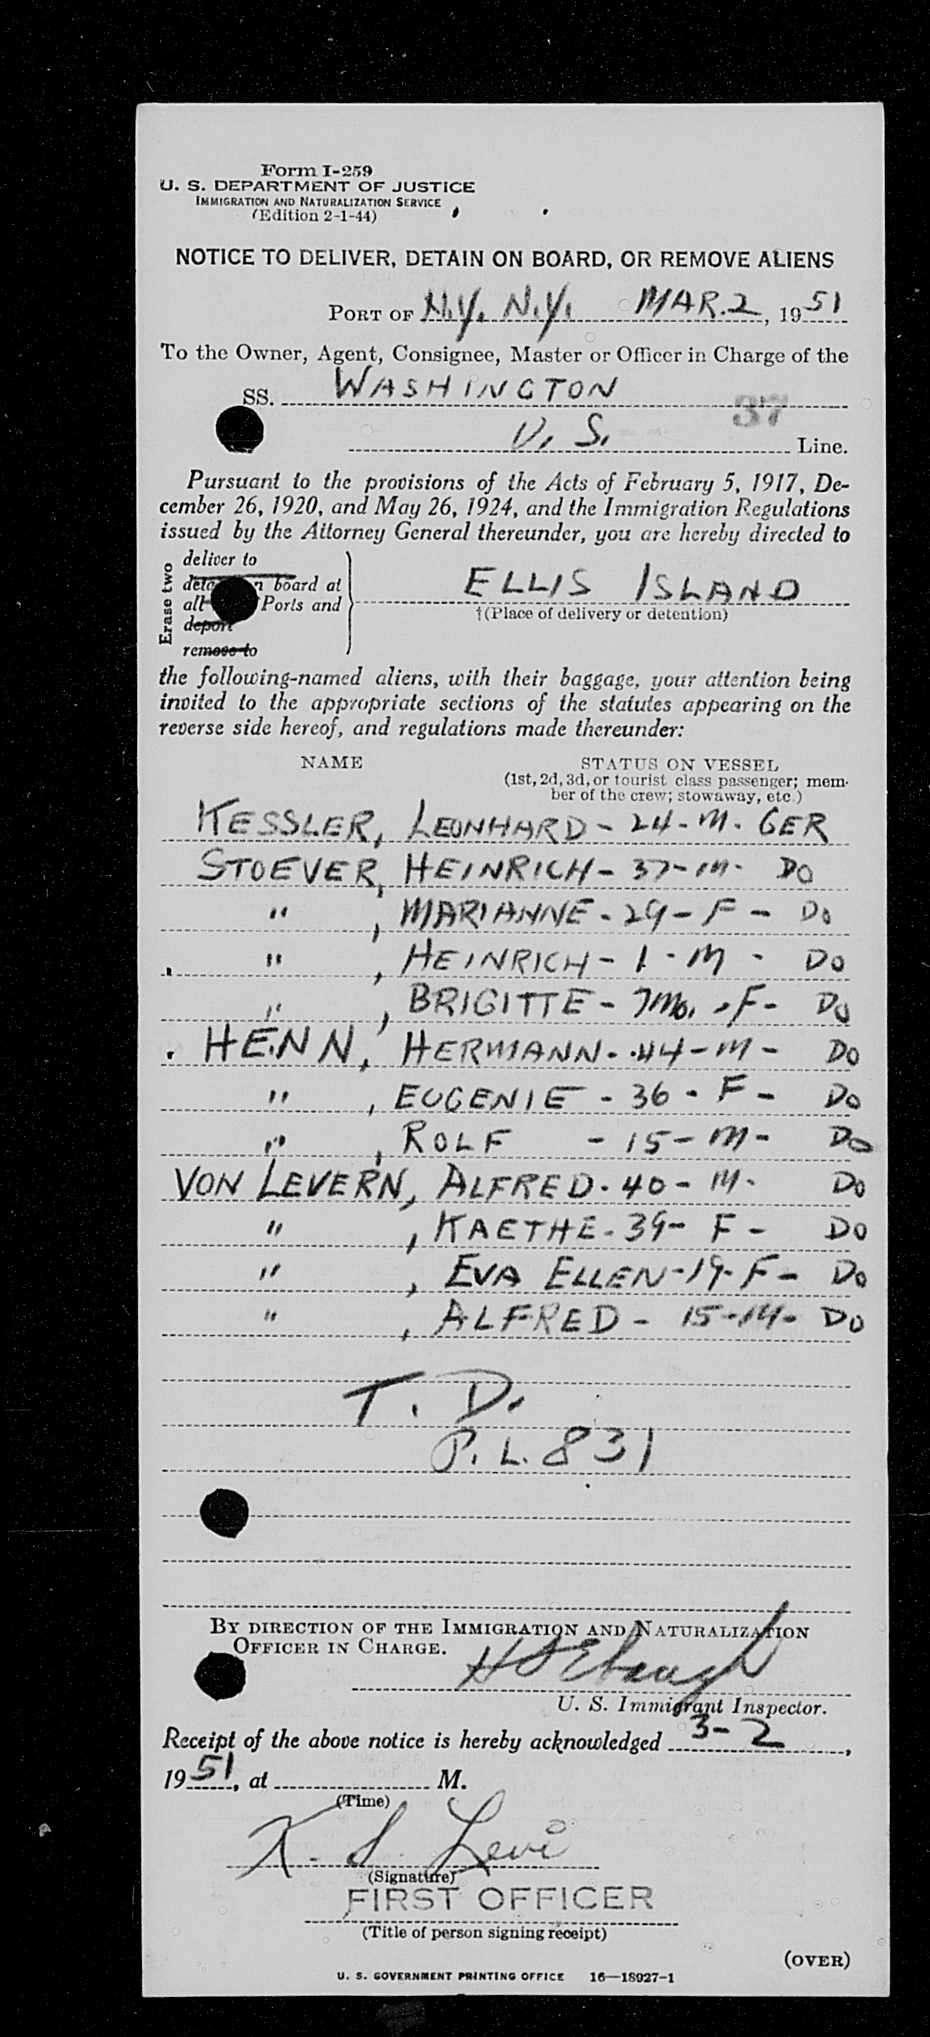 Form I-259
U. S. DEPARTMENT OF JUSTICE
IMMIGRATION AND NATURALIZATION SERVICE
(Edition 2-1-44)
NOTICE TO DELIVER, DETAIN ON BOARD, OR REMOVE ALIENS
PORT OF N.Y. N.Y. MAR. 2, 1951
To the Owner, Agent, Consignee, Master or Officer in Charge of the
SS. WASHINGTON
37
U. S. Line.
Pursuant to the provisions of the Acts of February 5, 1917, De-
cember 26, 1920, and May 26, 1924, and the Immigration Regulations
issued by the Attorney General thereunder, you are hereby directed to
Erase two
deliver to
board at
all Ports and
deport
remove to
ELLIS ISLAND
†(Place of delivery or detention)
the following-named aliens, with their baggage, your attention being
invited to the appropriate sections of the statutes appearing on the
reverse side hereof, and regulations made thereunder:
NAME STATUS ON VESSEL
(1st, 2d, 3d, or tourist class passenger; mem-
ber of the crew; stowaway, etc.)
KESSLER, LEONHARD - 24 - M. GER
STOEVER, HEINRICH - 37 - M - DO
" , MARIANNE - 29 - F - DO
" , HEINRICH - 1 - M - DO
" , BRIGITTE - 7 Mo. - F - DO
HENN, HERMANN - 44 - M - DO
" , EUGENIE - 36 - F - DO
" , ROLF - 15 - M - DO
VON LEVERN, ALFRED - 40 - M - DO
" , KAETHE - 39 - F - DO
" , EVA ELLEN - 19 - F - DO
" , ALFRED - 15 - M - DO
T. D.
P. L. 831
BY DIRECTION OF THE IMMIGRATION AND NATURALIZATION
OFFICER IN CHARGE.
U. S. Immigrant Inspector.
Receipt of the above notice is hereby acknowledged 3-2,
1951, at M.
(Time)
K. S. Levi
(Signature)
FIRST OFFICER
(Title of person signing receipt)
(OVER)
U. S. GOVERNMENT PRINTING OFFICE 16—18927-1